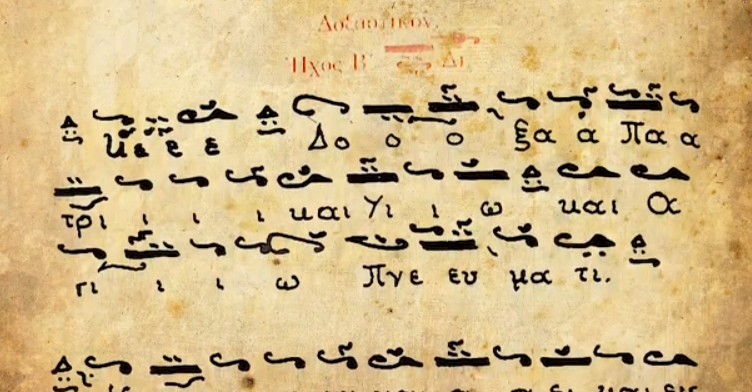 Δοξαστικόν.
Ἦχος Β' Δι
Νε ε ε Δο ο ο ξα α Πα α
τρι ι ι ι και Υι ι ω και Α
γι ι ι ω Πνε ευ μα τι.